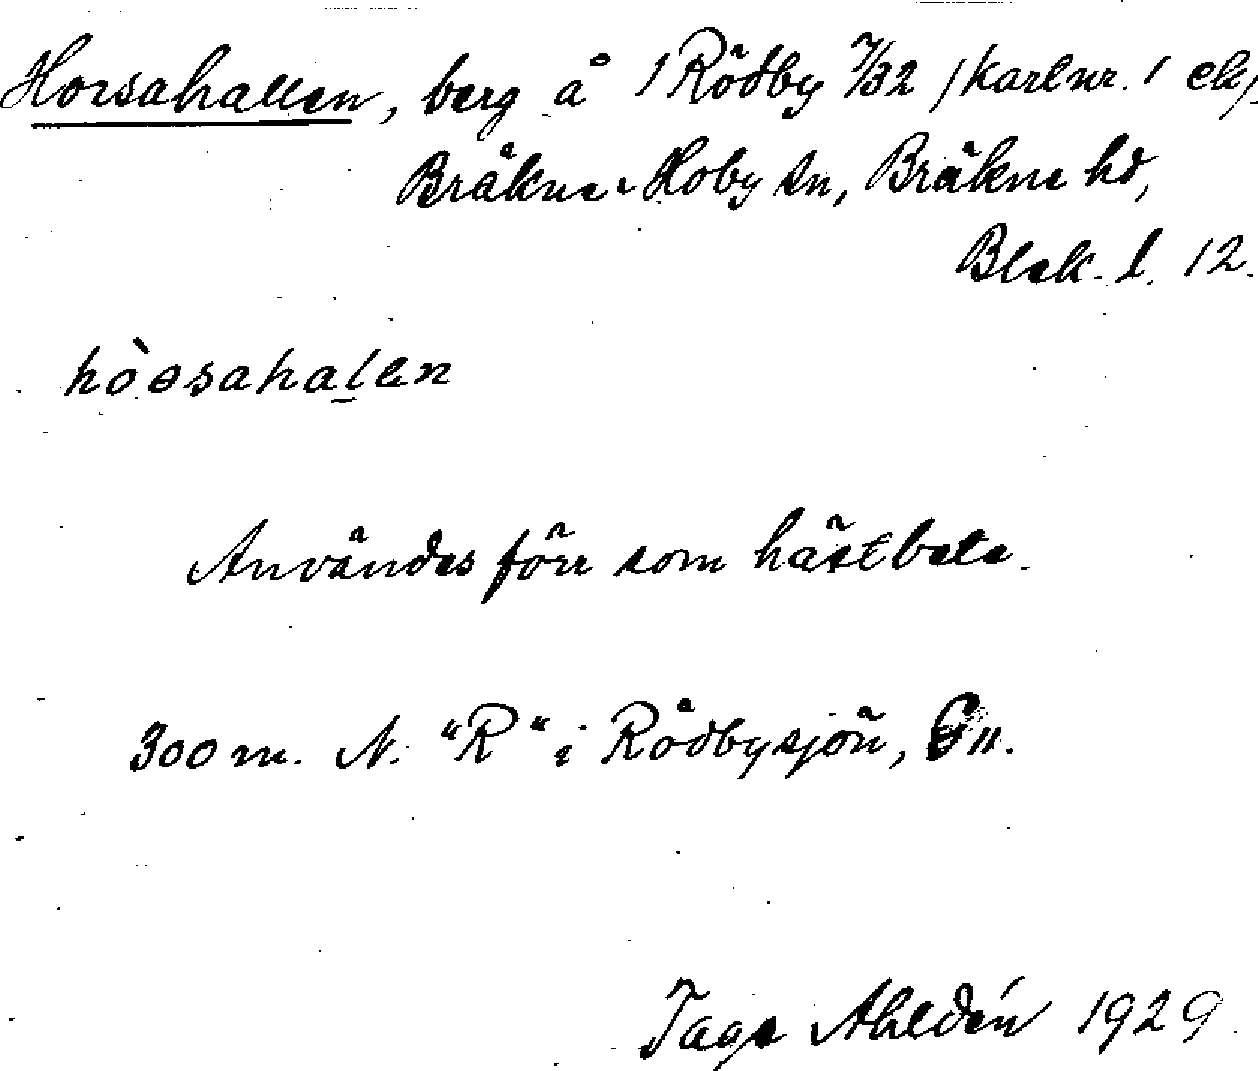 Horsahallen, berg å 1 Rödby 7/32 /kartnr. 1 ek/,
Bräkne-Hoby sn, Bräkne hd,
Blek. l. 12.
hòssahalen
Användes förr som hästbete.
300 m. N. "R" i Rödbysjön,
Tage Ahldén 1929.